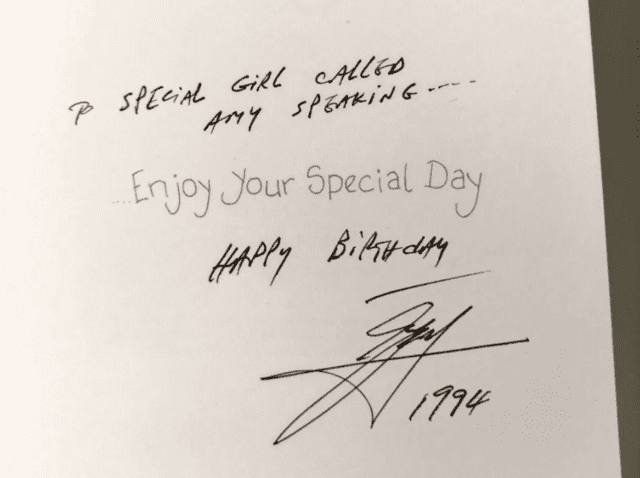 TO SPECIAL GIRL CALLED
AMY SPEAKING ....
...Enjoy Your Special Day
HAPPY BiRTHdAY
1994